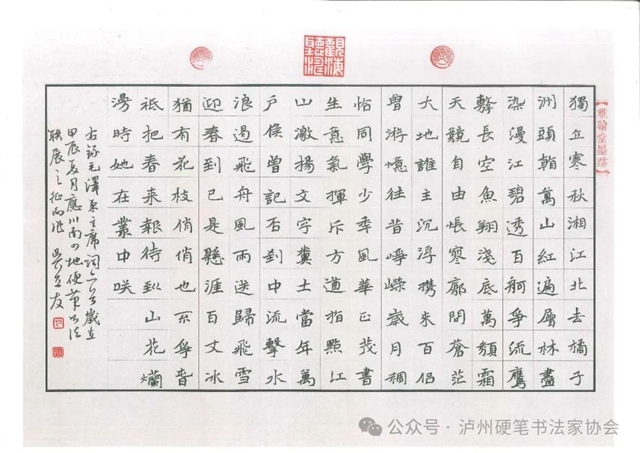 獨立寒秋湘江北去橘子
洲頭看萬山紅遍層林盡
染漫江碧透百舸爭流鷹
擊長空魚翔淺底萬類霜
天競自由悵寥廓問蒼茫
大地誰主沉浮攜來百侶
曾游憶往昔崢嶸歲月稠
恰同學少年風華正茂書
生意氣揮斥方遒指點江
山激揚文字糞土當年萬
戶侯曾記否到中流擊水
浪遏飛舟風雨送歸飛雪
迎春到已是懸涯百丈冰
猶有花枝俏俏也不爭春
祗把春來報待到山花爛
漫時她在叢中咲
右錄毛澤東主席詞二首歲在
甲辰夏月應川南四地硬筆書法
聯展之征而作 友
公众号·泸州硬笔书法家协会